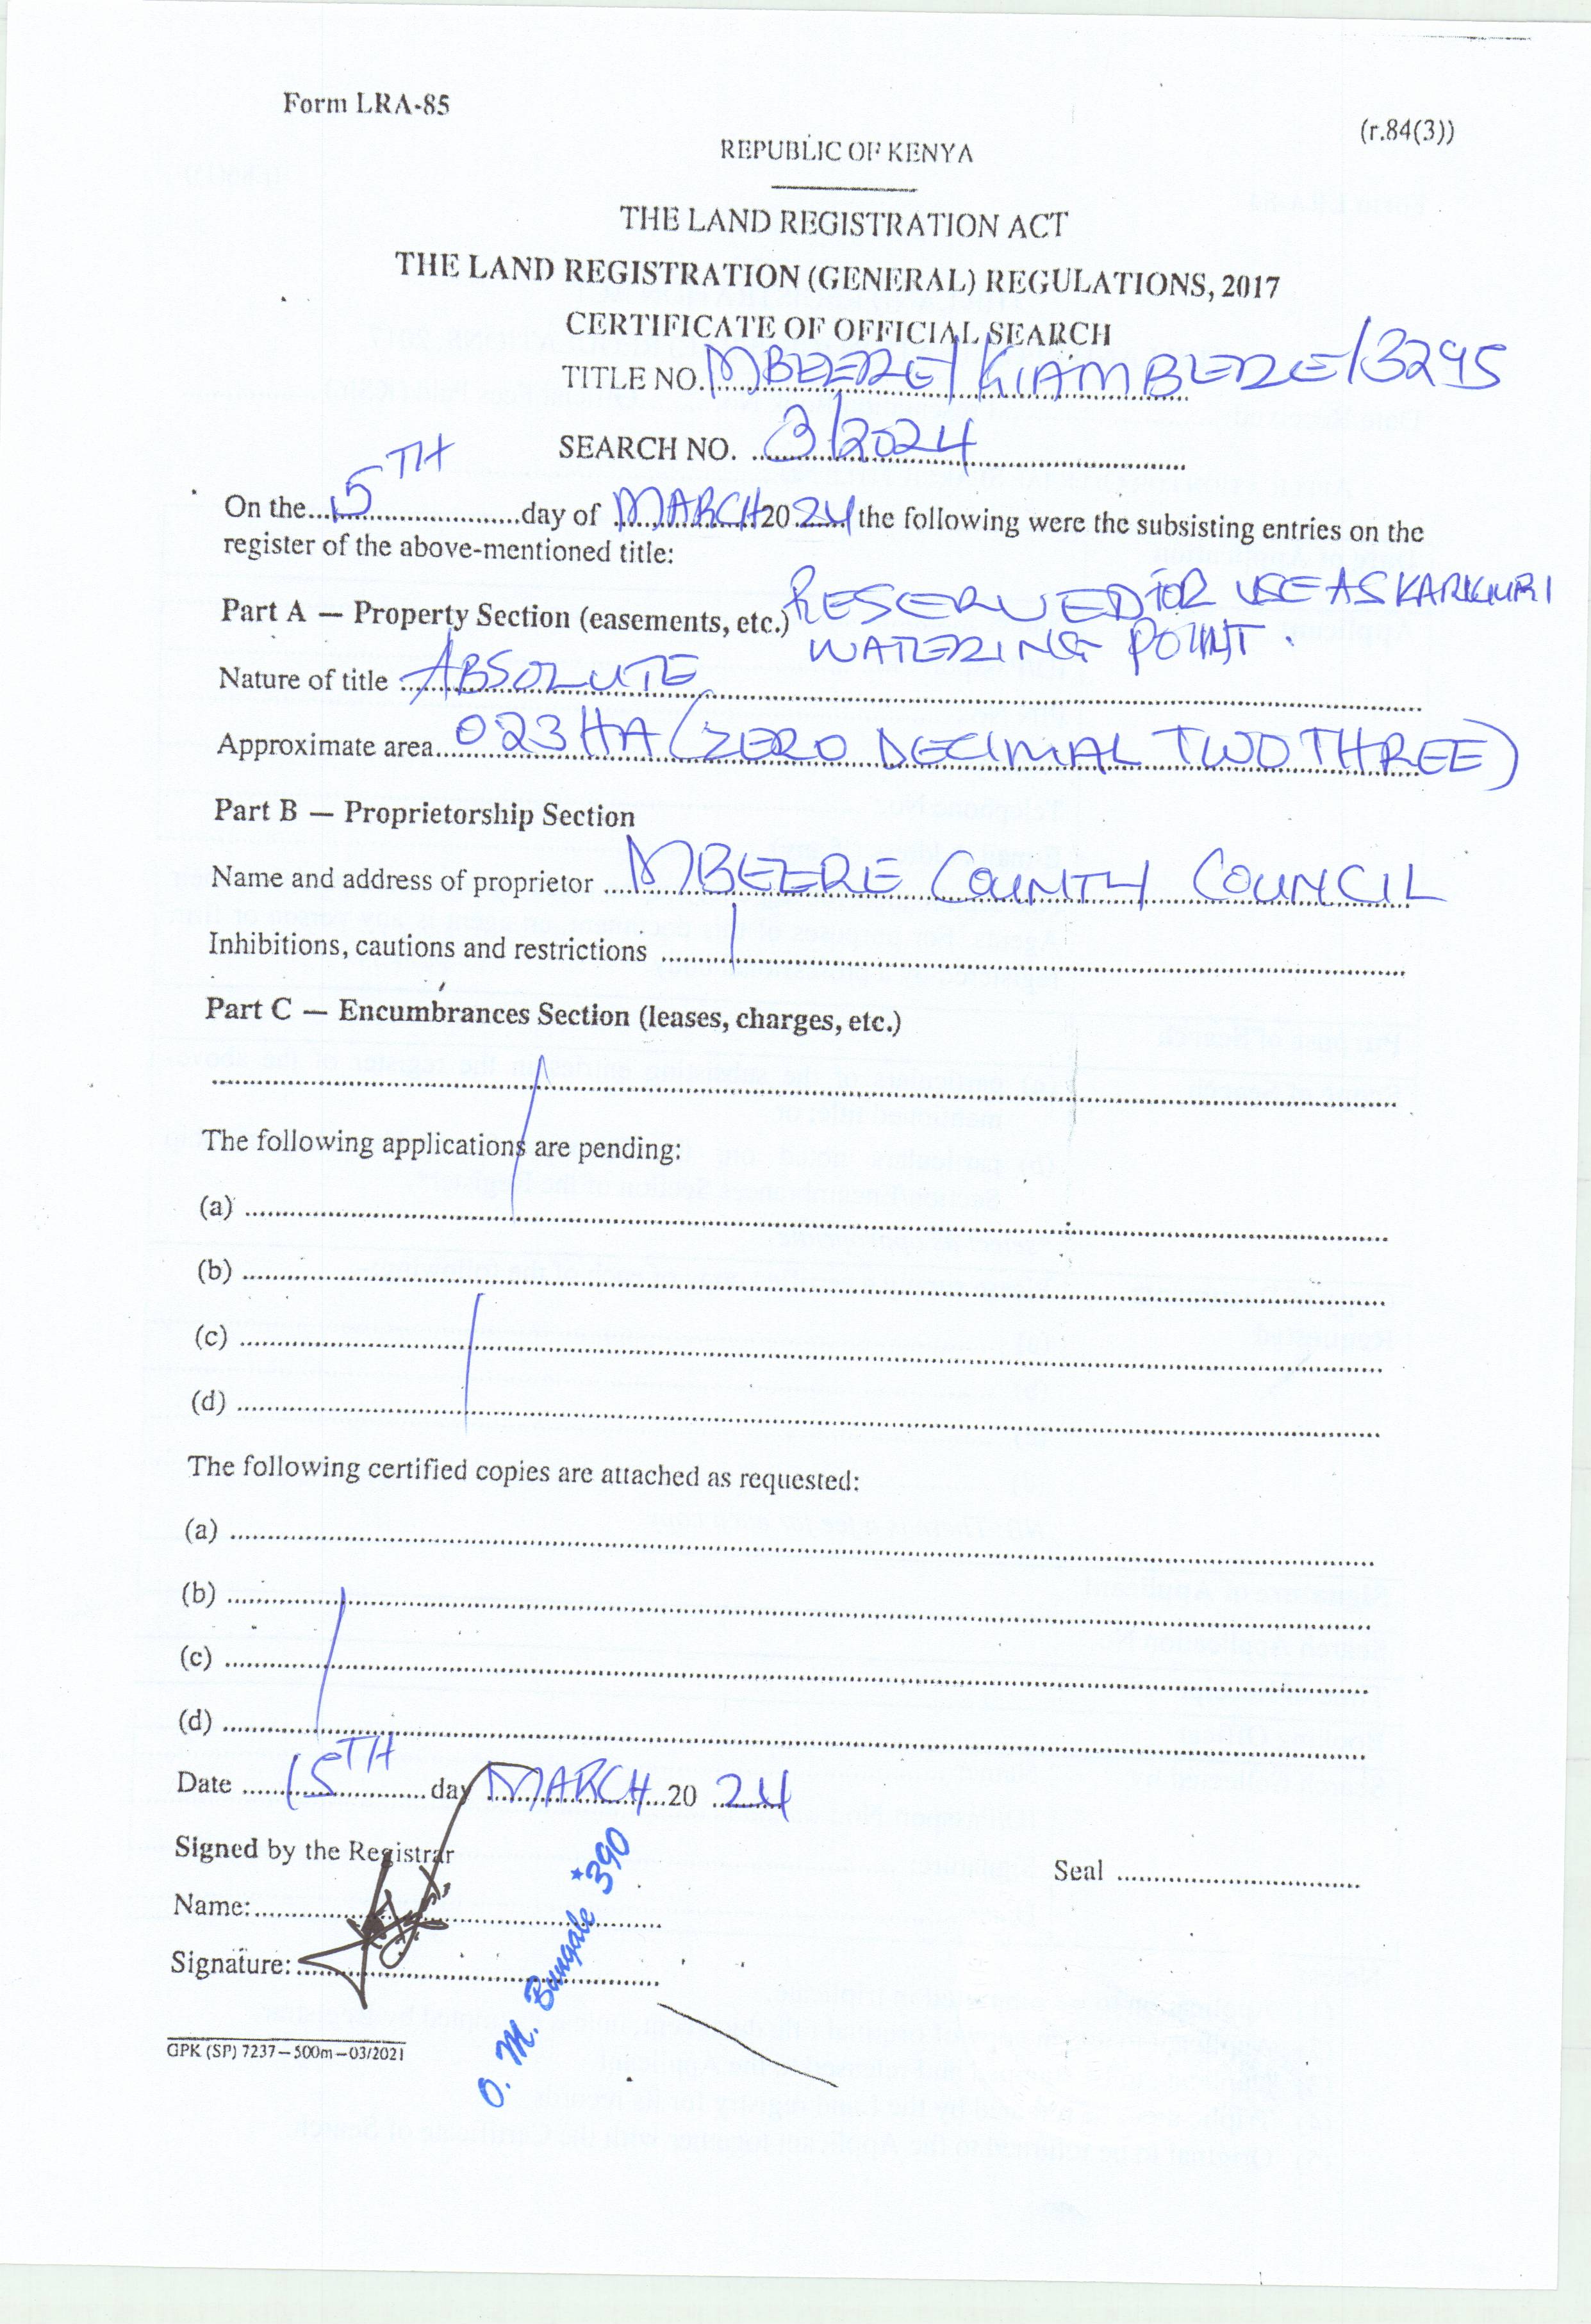 Form LRA-85
(r.84(3))
REPUBLIC OF KENYA
THE LAND REGISTRATION ACT
THE LAND REGISTRATION (GENERAL) REGULATIONS, 2017
CERTIFICATE OF OFFICIAL SEARCH
TITLE NO. MBEERE/KIAMBERE/3295
SEARCH NO. 3/2024
On the 15TH day of MARCH 2024 the following were the subsisting entries on the
register of the above-mentioned title:
Part A — Property Section (easements, etc.) RESERVED FOR USE AS
WATERING POINT.
Nature of title ABSOLUTE
Approximate area 023HA (ZERO DECIMAL TWO THREE)
Part B — Proprietorship Section
Name and address of proprietor MBEERE COUNTY COUNCIL
Inhibitions, cautions and restrictions
Part C — Encumbrances Section (leases, charges, etc.)
The following applications are pending:
(a)
(b)
(c)
(d)
The following certified copies are attached as requested:
(a)
(b)
(c)
(d)
Date 15TH day MARCH 2024
Signed by the Registrar
Seal
Name:
Signature:
O. M. Bungale *390
GPK (SP) 7237—500m—03/2021